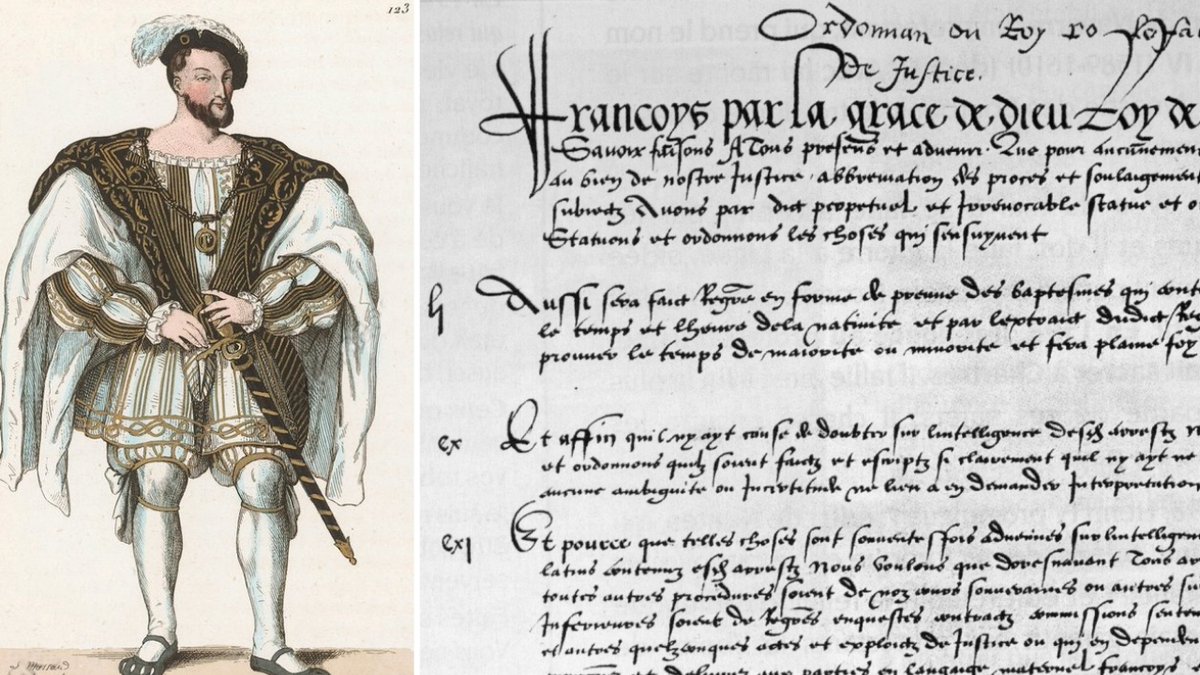 123
Ordonnan du Roy
De Justice.
Francoys par la grace de dieu Roy de
Scavoir faisons A Tous presens et advenir. Que pour aucunement
au bien de nostre Justice. abbreviation des proces et soulaigement
subiectz Avons par dict perpetuel et Irrevocable statue et o
Statuons et ordonnons les choses qui sensuyvent
Aussi sera faict Regre en forme de preuve des baptesmes qui cont
le temps et lheure dela nativite et par lextraict dudict
prouver le temps de maiorite ou minorite et fera plaine foy
ex Et affin quil ny ayt cause de doubter sur lintelligence desd arrestz
et ordonnons quilz soient faictz et escriptz si clairement quil ny ayt ne
aucune ambiguite ou Incertitude ne lieu a en demander Interpretation
Et pource que telles choses sont souventesfois advenues sur lintelligen
latins contenuz esd arrestz Nous voulons que doresnavant Tous
toutes autres procedures soient de noz cours souveraines ou autres su
Inferieures soient de Regres enquestes contractz commissions senten
et autres quelzconques actes et exploictz de Justice ou qui en dependen
et delivrez aux parties en langaige maternel francoys